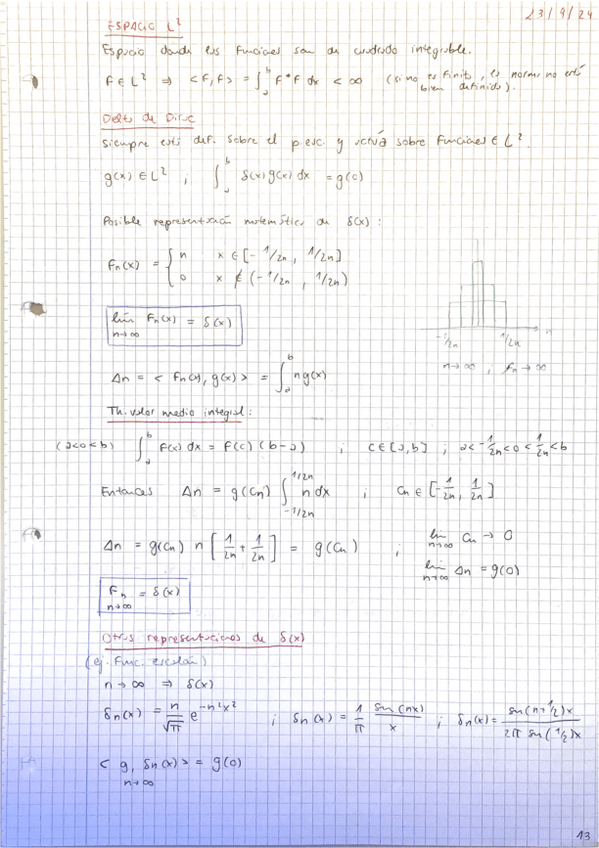 23/9/24
ESPACIO L²
Espacio donde las funciones son de cuadrado integrable.
F ∈ L² ⇒ <F,F> = ∫ₐᵇ F*F dx < ∞ (si no es finito, la norma no está
bien definida).
Delta de Dirac
siempre está def. sobre el p.esc. y actúa sobre funciones ∈ L².
g(x) ∈ L² ; ∫ₐᵇ δ(x) g(x) dx = g(0)
Posible representación matemática de δ(x):
Fn(x) = { n x ∈ [-1/2n, 1/2n]
0 x ∉ (-1/2n, 1/2n)
lim Fn(x) = δ(x)
n→∞
-1/2n 1/2n n
n→∞ ; fn→∞
Δn = <Fn(x), g(x)> = ∫ₐᵇ n g(x)
Th. valor medio integral:
(a<0<b) ∫ₐᵇ F(x) dx = F(c) (b-a) ; c ∈ [a,b] ; a < -1/2n < 0 < 1/2n < b
Entonces Δn = g(Cn) ∫_{-1/2n}^{1/2n} n dx ; Cn ∈ [-1/2n, 1/2n]
Δn = g(Cn) n [1/2n + 1/2n] = g(Cn) ; lim n→∞ Cn → 0
lim n→∞ Δn = g(0)
Fn = δ(x)
n→∞
Otras representaciones de δ(x)
(ej. Func. escalón)
n→∞ ⇒ δ(x)
δn(x) = n/√π e^{-n²x²} ; δn(x) = 1/π sen(nx)/x ; δn(x) = sen(n+1/2)x / 2π sen(1/2)x
<g, δn(x)> = g(0)
n→∞
13